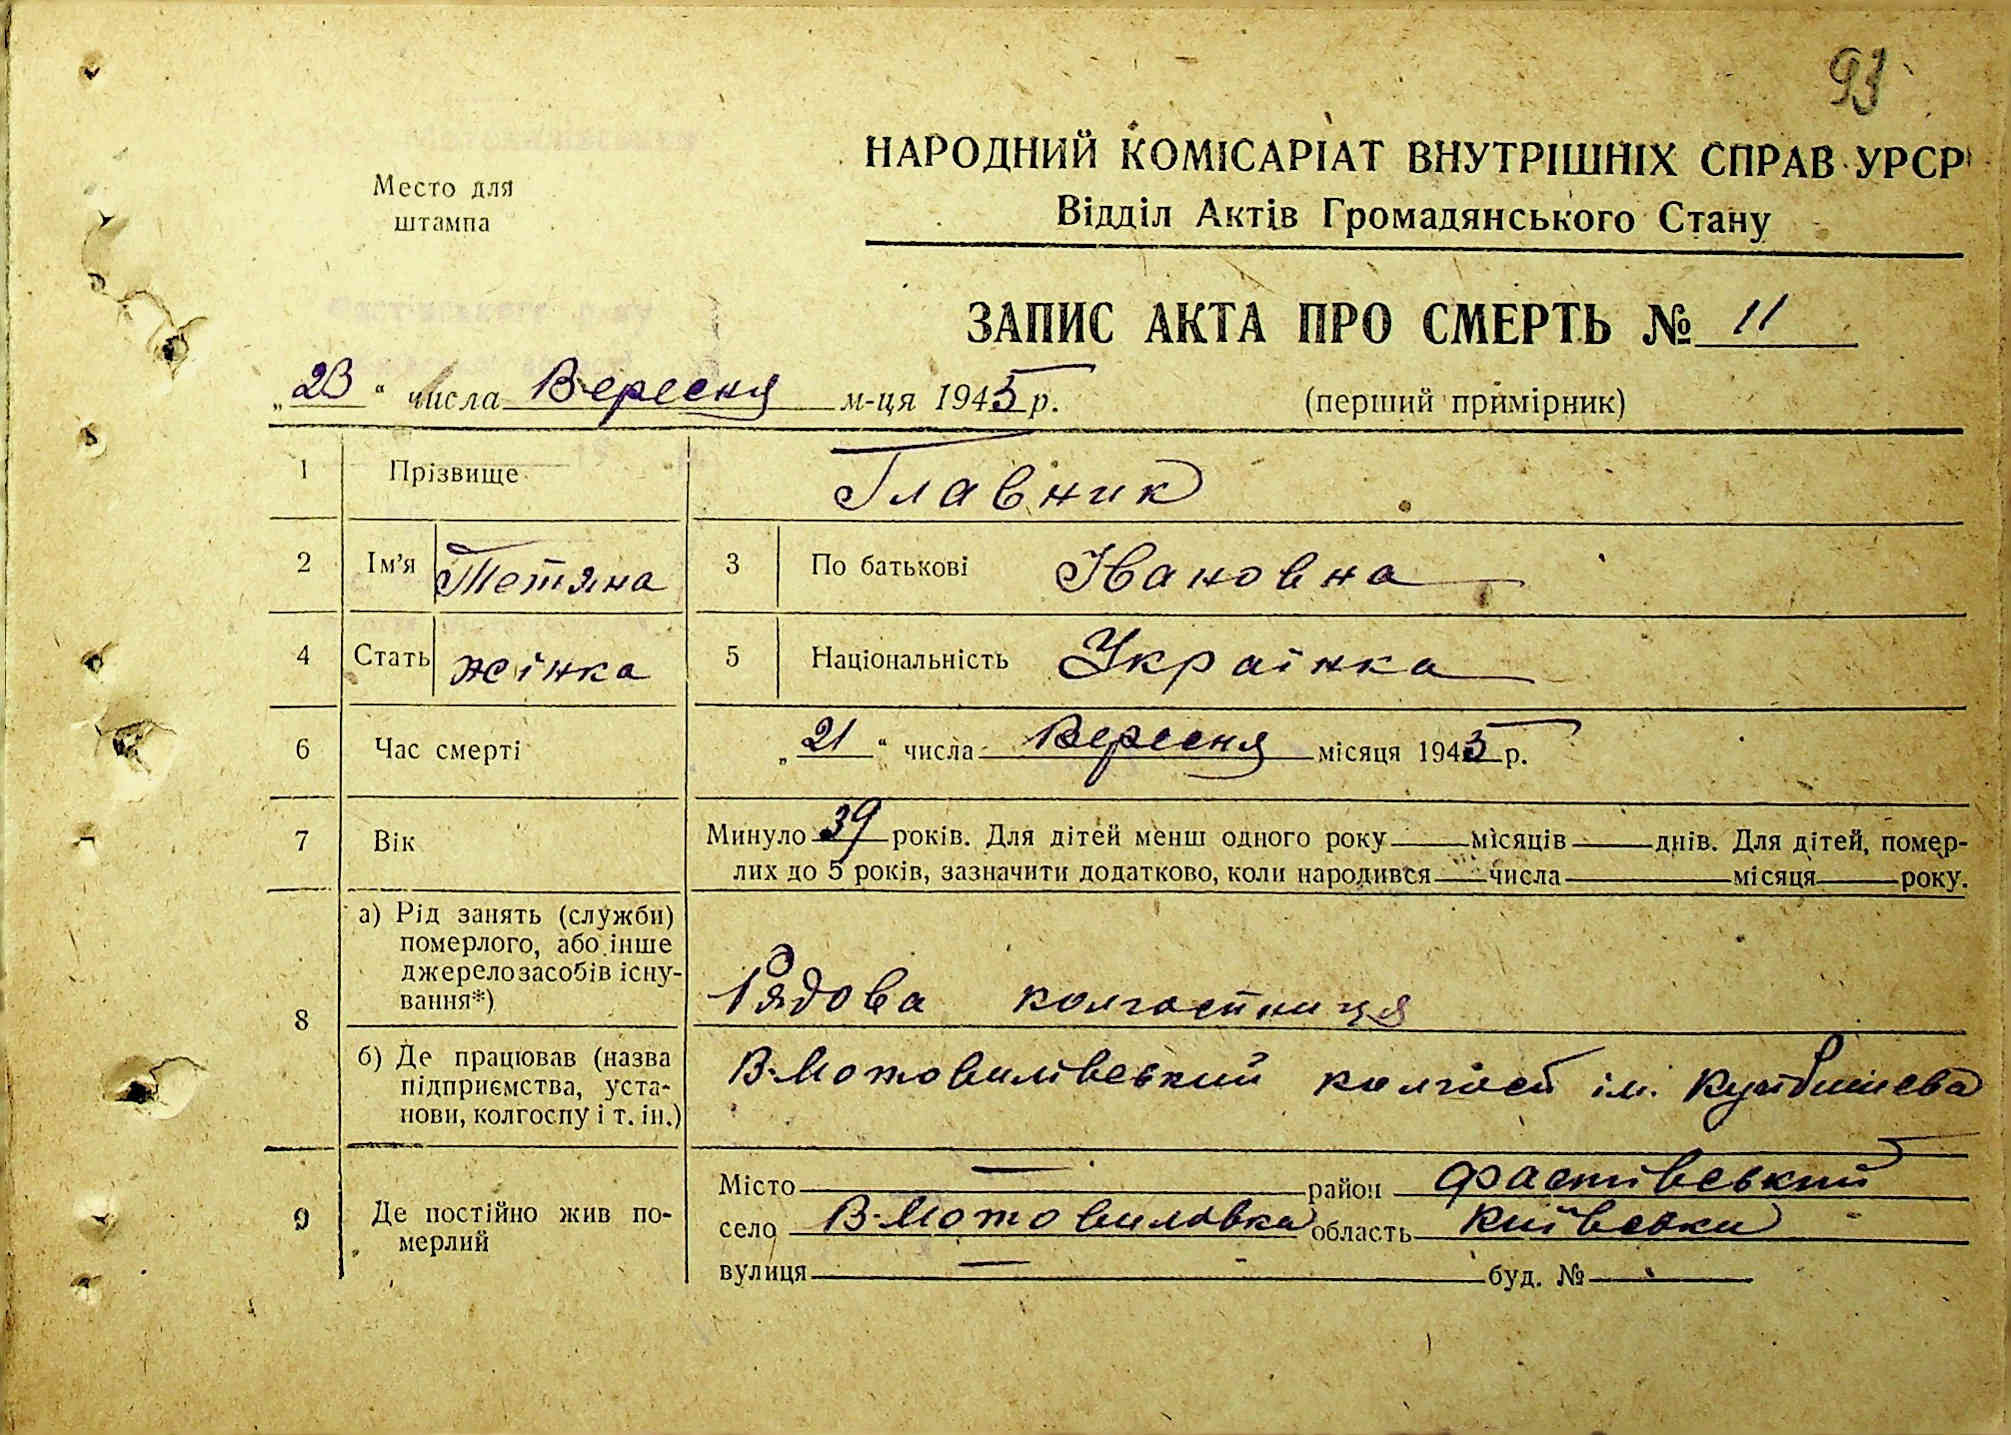 93
НАРОДНИЙ КОМІСАРІАТ ВНУТРІШНІХ СПРАВ УРСР
Место для
штампа
Відділ Актів Громадянського Стану
ЗАПИС АКТА ПРО СМЕРТЬ № 11
„23“ числа Вересня м-ця 1945 р.
(перший примірник)
1 Прізвище Главник
2 Ім'я Тетяна 3 По батькові Івановна
4 Стать жінка 5 Національність Українка
6 Час смерті „21“ числа Вересня місяця 1945 р.
7 Вік Минуло 39 років. Для дітей менш одного року місяців днів. Для дітей, помер-
лих до 5 років, зазначити додатково, коли народився числа місяця року.
8 а) Рід занять (служби)
померлого, або інше
джерело засобів існу-
вання*)
Рядова колгоспниця
б) Де працював (назва
підприємства, уста-
нови, колгоспу і т. ін.)
В-Мотовилівський колгосп ім. Куйбишева
9 Де постійно жив по-
мерлий
Місто — район Фастівський
село В-Мотовиловка область Київська
вулиця — буд. №